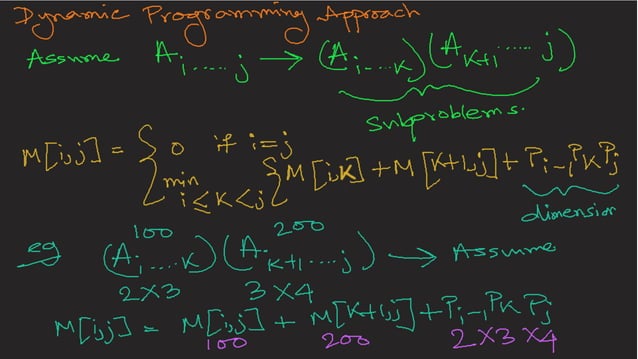 Dynamic Programming Approach
Assume A i.....j → (A i....k)(A k+1.....j)
Subproblems.
M[i,j] = { 0 if i=j
min i≤k<j { M[i,k] + M[k+1,j] + Pi-1PkPj
dimension
100 200
eg (Ai.....k)(Ak+1....j) → Assume
2×3 3×4
M[i,j] = M[i,j] + M[k+1,j] + Pi-1PkPj
100 200 2×3×4